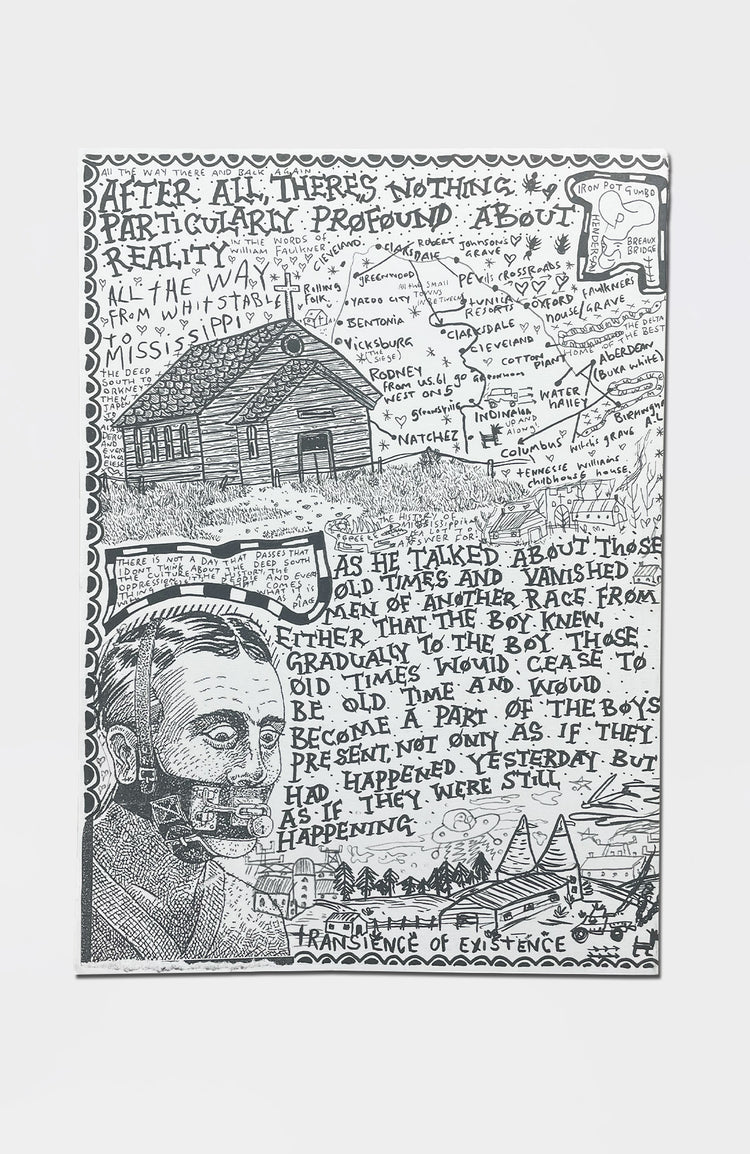 All THE WAY THERE AND BACK AGAIN
AFTER ALL, THERE'S NØTHING
PARTICULARLY PRØFØUND ABØUT
REALITY
IN THE WORDS OF
William FAULKNER
ALL THE WAY
FROM WHITSTABLE
TO
MISSISSIPPI
THE DEEP
SOUTH TO
ORKNEY
THEN
AND
EVERY
ELSE
IRON POT GUMBO
HENDERSON
BREAUX
BRIDGE
CLEVELAND
CLARKSDALE
ROBERT JOHNSON'S
GRAVE
Rolling
Folk
GREENWOOD
All the Small
TOWNS
IN BETWEEN
DEVILS CROSSROADS
YAZOO CITY
TUNICA
RESORTS
OXFORD
FAULKNERS
HOUSE/GRAVE
BENTONIA
CLARKSDALE
THE DELTA
HOME OF THE BEST
VICKSBURG
(THE SIEGE)
CLEVELAND
COTTON
PLANT
ABERDEEN
(BUKA WHITE)
RODNEY
From US.61 GO
WEST ON
GREENWOOD
WATER
VALLEY
Greenville
INDINAlOA
UP AND
Along!
BIRMINGHAM
A.L
NATCHEZ
COLUMBUS
WITCHS GRAVE
TENNESSE WILLIAMS
childhose house
THE HISTORY OF
MISSISSIPPI
A LOT TO
ANSWER FOR
THERE IS NOT A DAY THAT PASSES THAT
I DONT THINK ABOUT THE DEEP SOUTH
THE CULTURE, THE HISTORY, THE
OPPRESSION, THE PEOPLE AND EVERY
THING
AS HE TALKED ABØUT THØSE
ØLD TIMES AND VANISHED
MEN ØF ANØTHER RACE FRØM
EITHER THAT THE BØY KNEW,
GRADUALLY TØ THE BØY THØSE
ØlD TIMES WØUlD CEASE TØ
BE ØLD TIME AND WØUlD
BECØME A PART ØF THE BØYS
PRESENT, NØT ØNlY AS IF THEY
HAD HAPPENED YESTERDAY BUT
AS IF THEY WERE STILL
HAPPENING
TRANSIENCE OF EXISTENCE